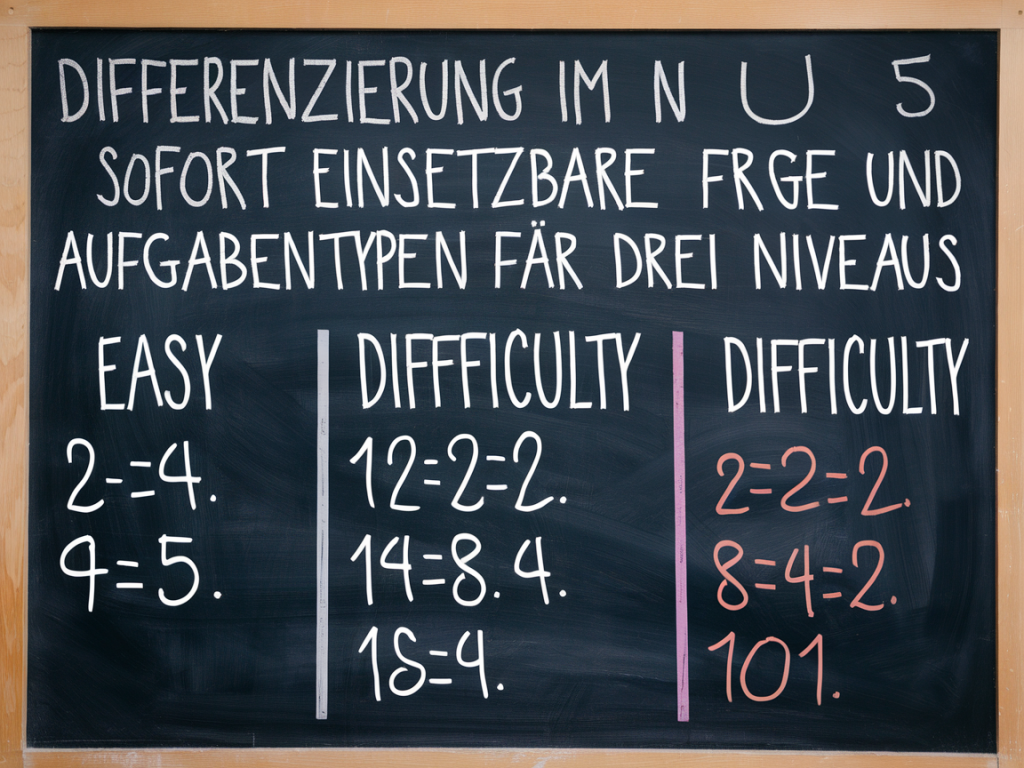 DIFFERENZIERUNG IM N U 5
SOFORT EINSETZBARE FRGE UND
AUFGABENTYPEN FÄR DREI NIVEAUS
EASY
2-=4.
9=5.
DIFFFICULTY
12=2=2.
14=8.4.
18=9.
DIFFICULTY
2=2=2.
8=4=2.
101.